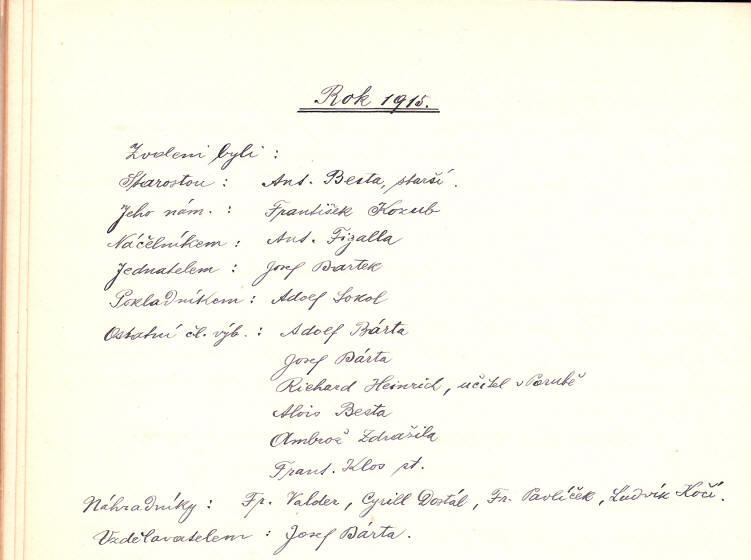 Rok 1915.
Zvoleni byli :
Starostou : Ant. Besta, starší.
Jeho nám. : František Kozub
Náčelníkem : Ant. Figalla
Jednatelem : Josef Bartek
Pokladníkem : Adolf Sokol
Ostatní čl. výb. : Adolf Bárta
Josef Bárta
Richard Heinrich, učitel v Porubě
Alois Besta
Ambrož Zdražila
Frant. Klos st.
Náhradníky : Fr. Valder, Cyrill Dostál, Fr. Pavlíček, Ludvík Kočí.
Vzdělavatelem : Josef Bárta.